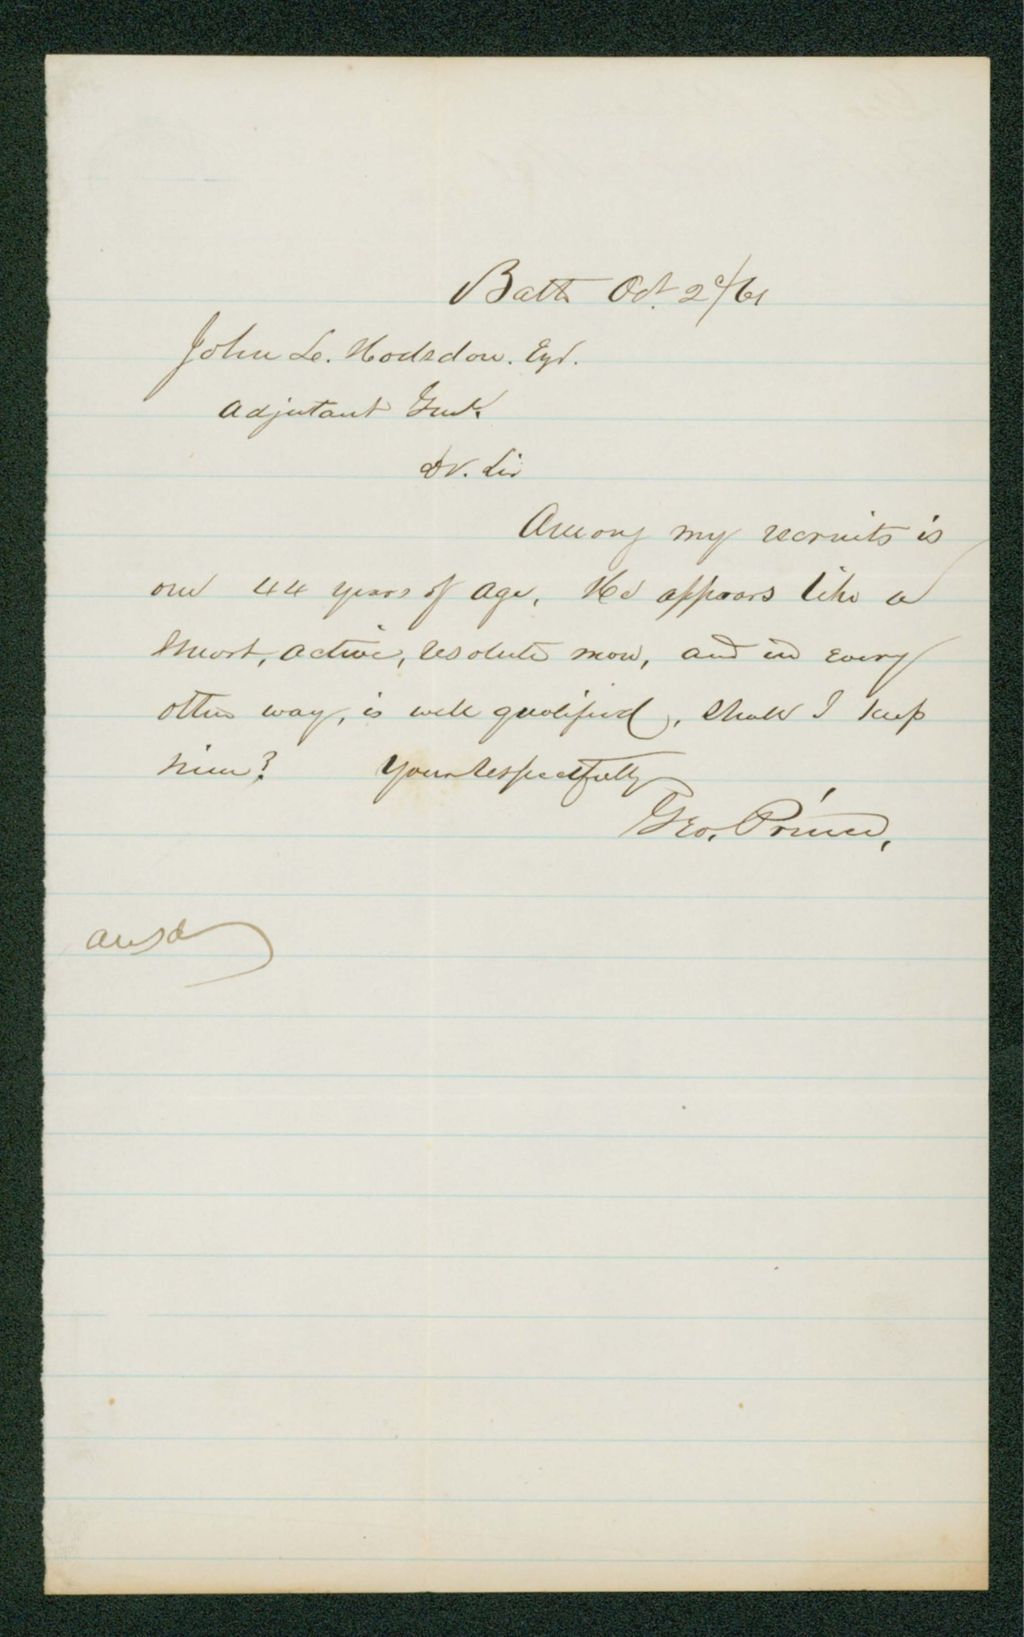 Bath Oct. 2d/61
John L. Hodsdon. Esqr.
Adjutant Genl.
Dr. Sir
Among my recruits is
one 44 years of age, He appears like a
smart, active, resolute man, and in every
other way, is well qualified, shall I keep
him? Yours respectfully
Geo. Prince,
ansd